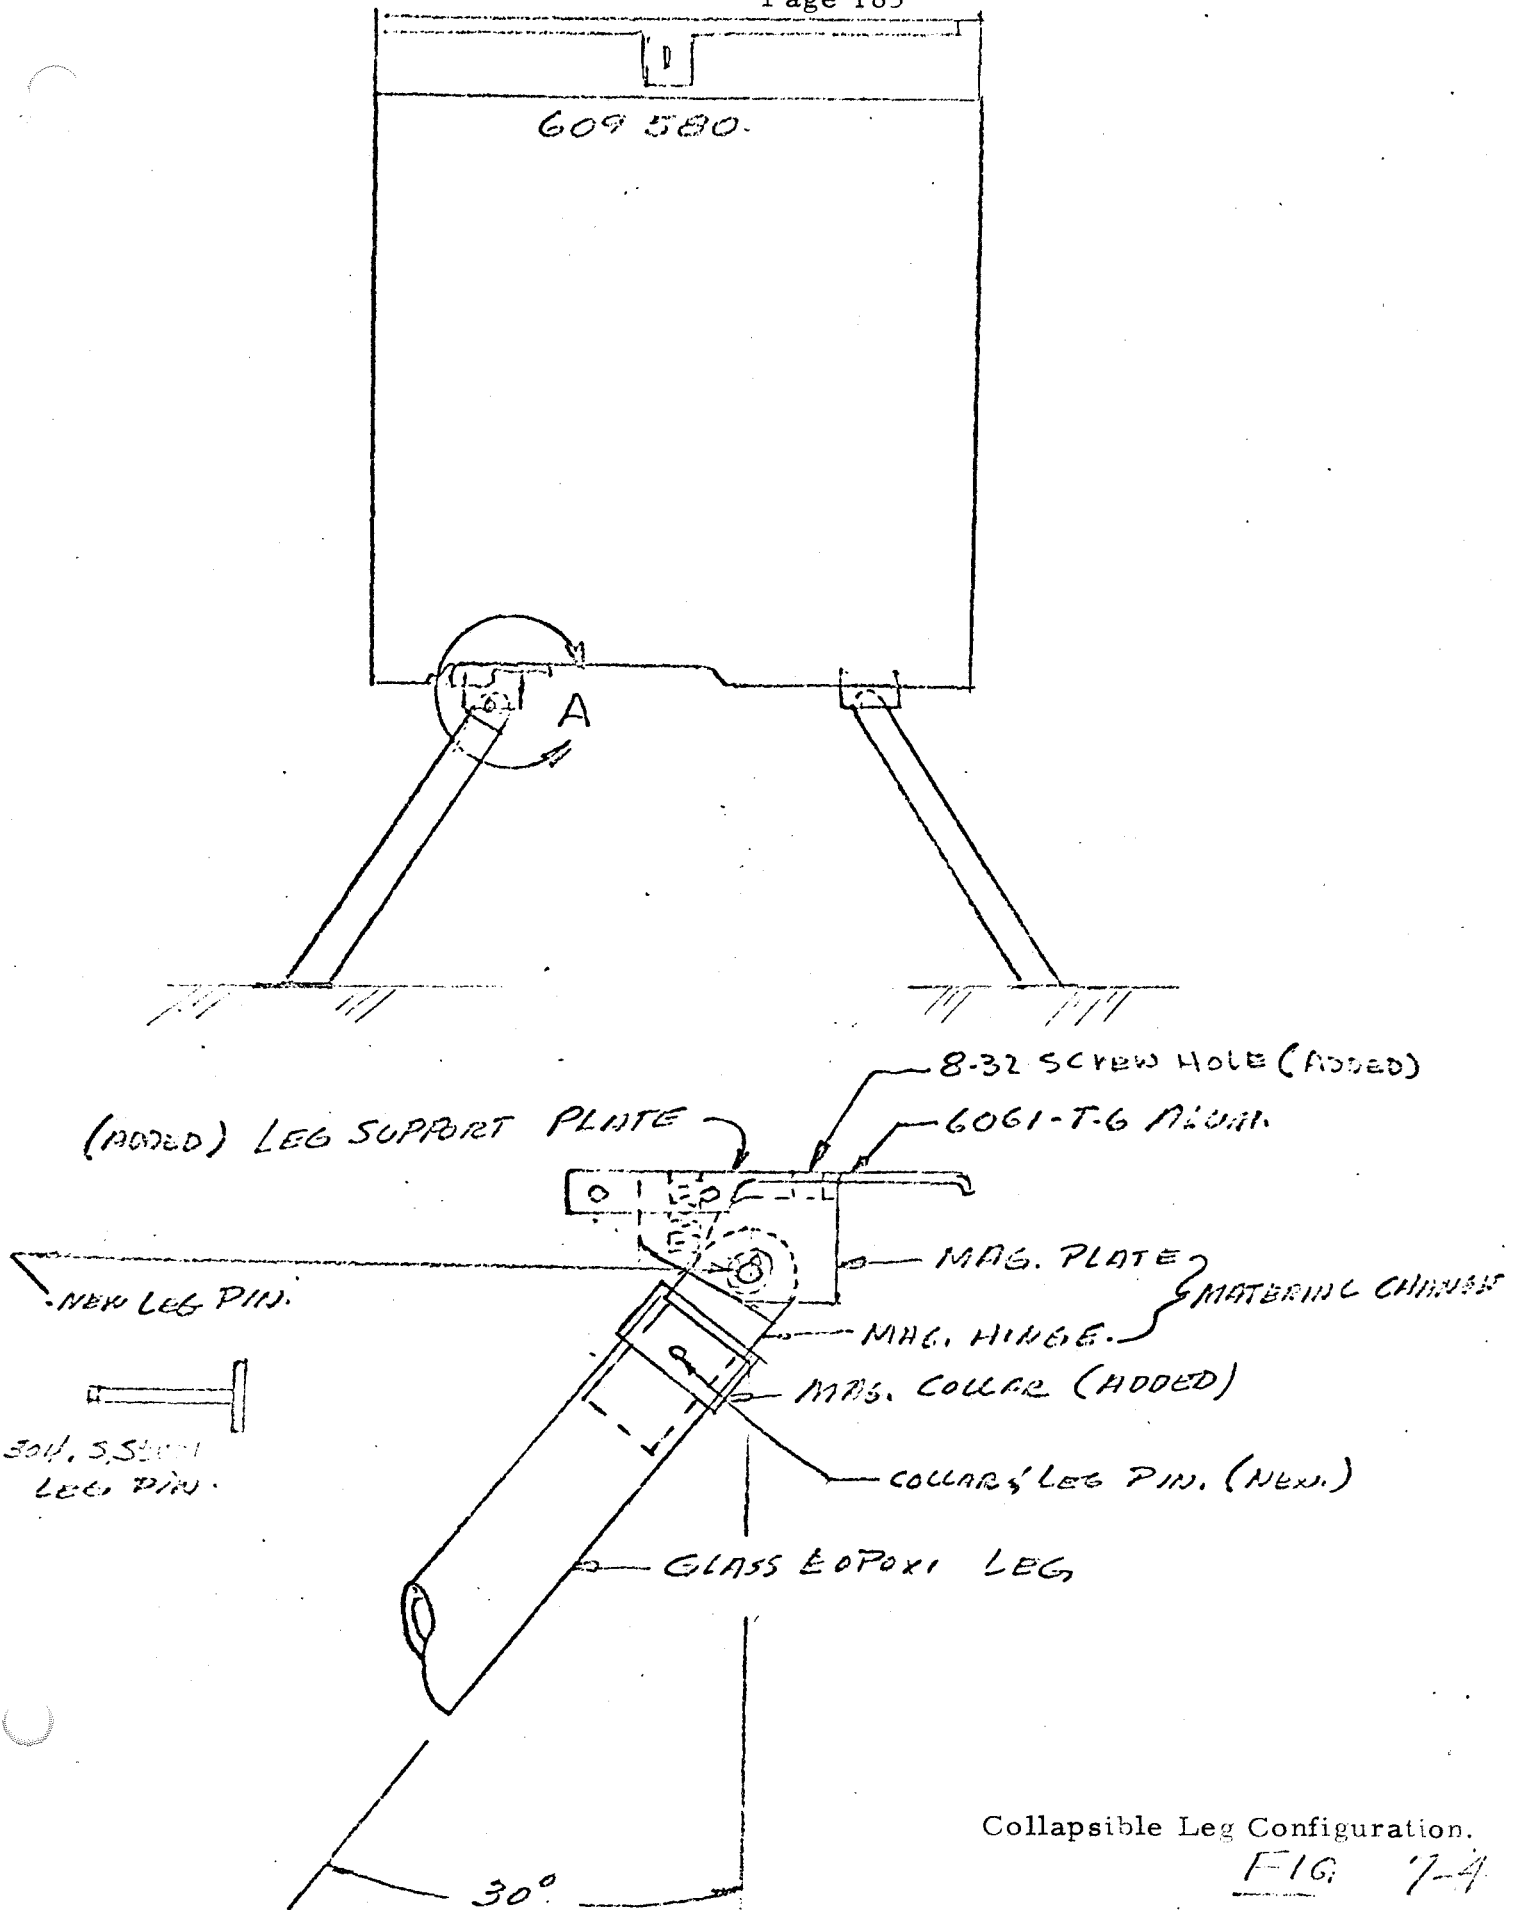 Page 185
609 580.
A
8-32 SCREW HOLE (ADDED)
(ADDED) LEG SUPPORT PLATE
6061-T-6 ALUM.
MAG. PLATE
MATERIAL CHANGE
NEW LEG PIN.
MAG. HINGE.
MAG. COLLAR (ADDED)
304. S.Steel
LEG PIN.
COLLAR & LEG PIN. (NEW.)
GLASS EOPOXI LEG
30°
Collapsible Leg Configuration.
FIG 7-4